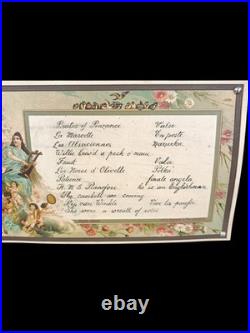 Pirates of Penzance Valse
La Mascotte En poste
Les Alsaciennes Mazurka
Willie brew'd a peck o' maut
Faust Valse
Les Noces d'Olivette Polka
Patience finale angela
H.M.S. Pinafore he is an Englishman
The Campbells are coming
Rip van Winkle Vive la
She wore a wreath of roses